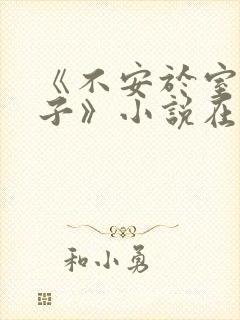 《不安於室
子》小說在
和小勇